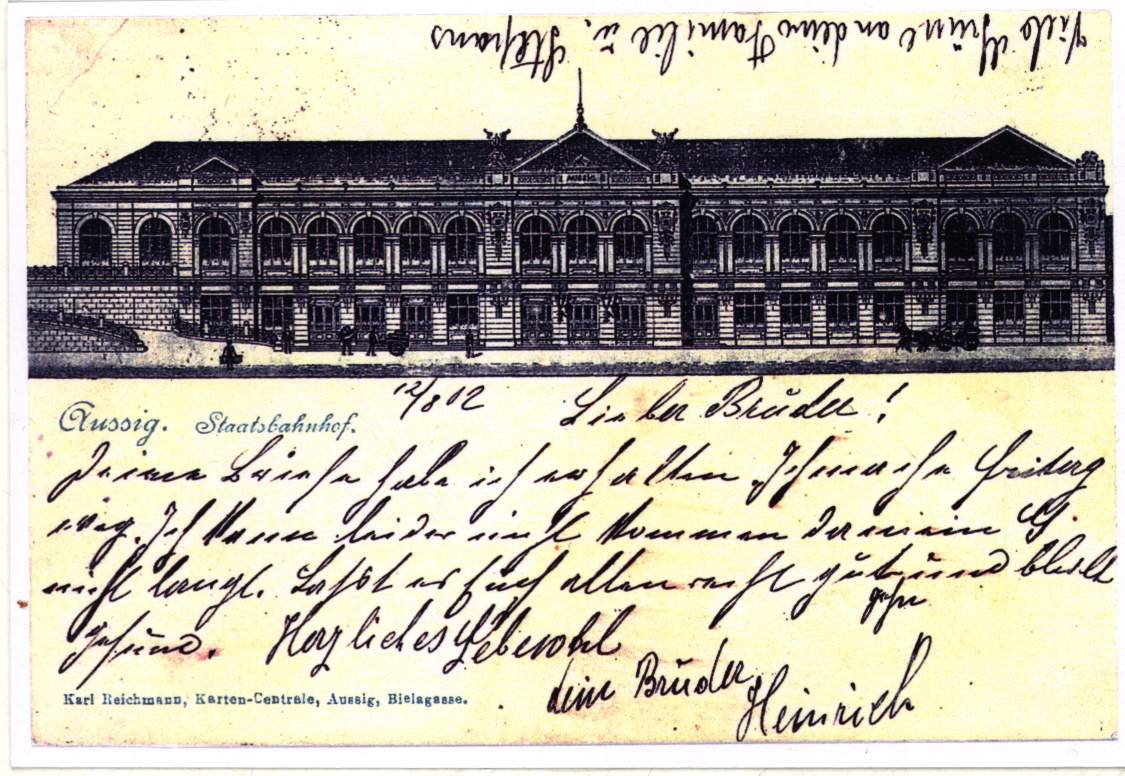 Viele Grüße an deine Familie u. Stepans
Aussig. Staatsbahnhof.
12/8 02
Lieber Bruder!
Deine Briefe habe ich erhalten. Ich mache freitag
weg. Ich kann leider nicht kommen da mein G.
nicht langt. Laßt es Euch allen recht gut gehn und bleibt
gesund. Herzliches Lebewohl
dein Bruder
Heinrich
Karl Reichmann, Karten-Centrale, Aussig, Bielagasse.